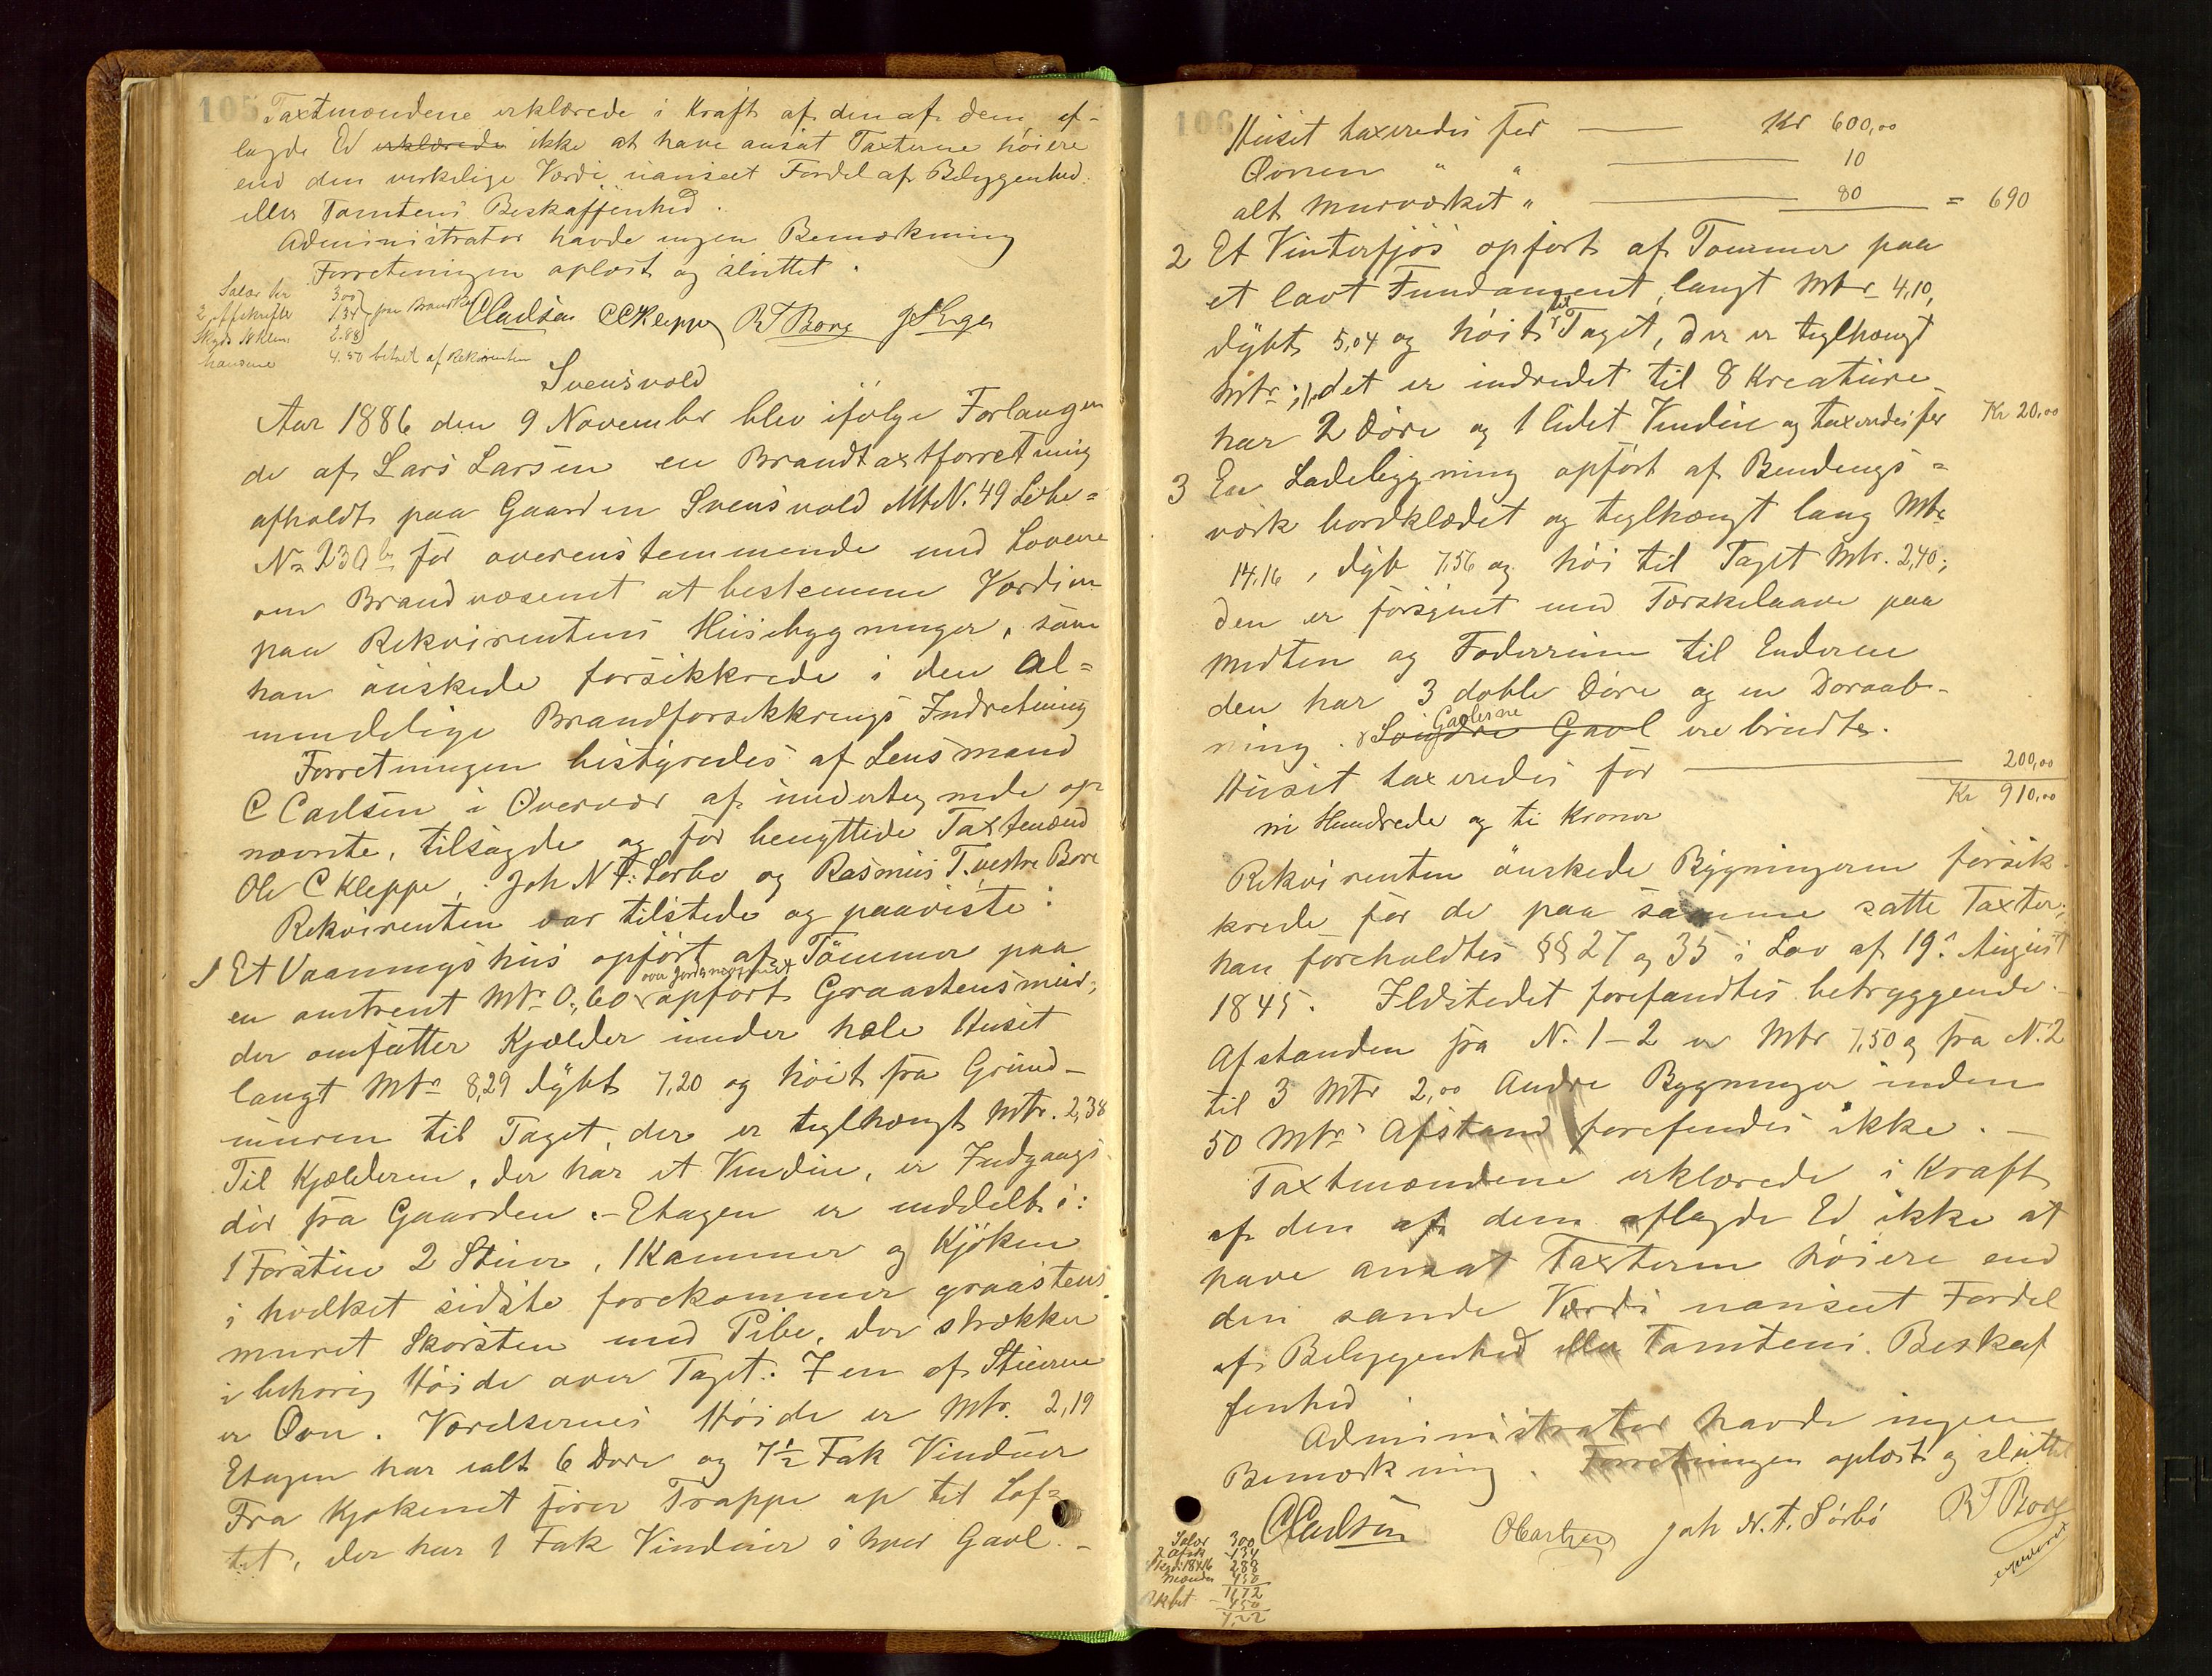 105
Taxtmændene erklærede i Kraft af den af dem af-
lagde Ed erklærede ikke at have ansat Taxterne høiere
end den virkelige Værdi uanseet Fordel af Beliggenhed
eller Tomtens Beskaffenhed.
Administrator havde ingen Bemærkning
Forretningen oplæst og sluttet.
Salær kr 3.00
2 Afskrifter 1.34
Skyds 18 klm. 2.88
4.50 betalt af Rekvirenten
CCarlsen OCKleppe RTBore
Svensvold
Aar 1886 den 9 November blev ifølge Forlangen
de af Lars Larsen en Brandtaxtforretning
afholdt paa Gaarden Svensvold MtN. 49 Løbe=
No 230 b for overensstemmende med Lovene
om Brandvæsenet at bestemme Værdien
paa Rekvirentens Husebygninger, som
han ønskede forsikkrede i den Al=
mindelige Brandforsikkrings Indretning
Forretningen bestyredes af Lensmand
C Carlsen i Overvær af undertegnede op
nævnte, tilsagde og før benyttede Taxtmænd
Ole C Kleppe, Joh N T. Sørbø og Rasmus T. vestre Bore
Rekvirenten var tilstede og paaviste:
1 Et Vaaningshus opført af Tømmer paa
over Jorden
en omtrent Mtr 0,60 opført Graastensmur,
der omfatter Kjælder under hele Huset
langt Mtr 8,29 dybt 7,20 og høit fra Grund-
muren til Taget, der er teglhængt Mtr. 2,38
Til Kjælderen, der har et Vindue, er Indgangs
dør fra Gaarden.- Etagen er inddelt i:
1 Forstue 2 Stuer, 1 Kammer og Kjøken
i hvilket sidste forekommer graastens
muret Skorsten med Pibe, der strækker
i behørig Høide over Taget. I en af Stuerne
er Ovn. Værelsernes Høide er Mtr. 2,19
Etagen har ialt 6 Døre og 7½ Fak Vinduer
Fra Kjøkenet fører Trappe op til Lof=
tet, der har 1 Fak Vinduer i hver Gavl.-
106
Huset taxeredes for Kr 600,00
Ovnen " " 10
alt Murværket " 80 = 690
2 Et Vinterfjøs opført af Tømmer paa
et lavt Fundament, langt Mtr 4,10,
til
dybt 5,04 og høit Taget, der er teglhængt
Mtr , det er indredet til 8 Kreature
har 2 Døre og 1 lidet Vindue og taxeredes for Kr 20,00
3 En Ladebygning opført af Bindings=
værk bordklædet og teglhængt lang Mtr
14,16, dyb 7,56 og høi til Taget Mtr. 2,40;
den er forsynet med Tærskelaave paa
Midten og Foderrum til Enderne
den har 3 doble Døre og en Doraab-
Gavlerne
ning. Søndre Gavl ere brudte.
Huset taxeredes for 200,00
Kr 910,00
ni Hundrede og ti Kroner
Rekvirenten ønskede Bygningerne forsik
krede for de paa samme satte Taxter;
han foreholdtes §§ 27 og 35 i Lov af 19. August
1845. Ildstedet forefandtes betryggende.
Afstanden fra N. 1-2 er Mtr 7,50 og fra N. 2
til 3 Mtr 2,00 Andre Bygninger inden
50 Mtrs Afstand forefindes ikke.-
Taxtmændene erklærede i Kraft
af den af dem aflagde Ed ikke at
have ansat Taxterne høiere end
den sande Værdi uanseet Fordel
af Beliggenhed eller Tomtens Beskaf
fenhed
Administrator havde ingen
Bemærkning. Forretningen oplæst og sluttet
CCarlsen Joh N. T. Sørbø RTBore
Salær 300
2 Afsk 134
288
450
1172
450
7,22